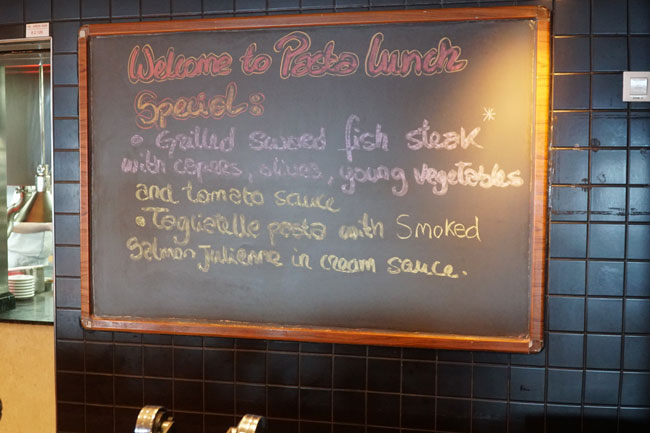 Welcome to Pasta Lunch
Special:
• Grilled sword fish steak*
with capres, olives, young vegetables
and tomato sauce
• Tagliatelle pasta with Smoked
Salmon Julienne in cream sauce.